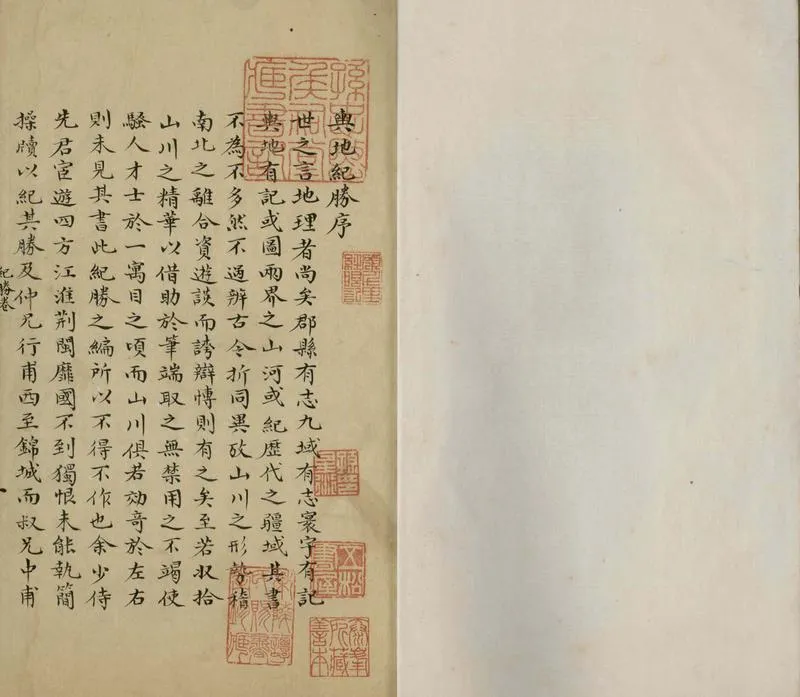 輿地紀勝序
世之言地理者尚矣郡縣有志九域有志寰宇有記
輿地有記或圖兩界之山河或紀歷代之疆域其書
不為不多然不過辨古今折同異攷山川之形勢稽
南北之離合資遊談而誇辯博則有之矣至若收拾
山川之精華以借助於筆端取之無禁用之不竭使
騷人才士於一寓目之頃而山川俱若効奇於左右
則未見其書此紀勝之編所以不得不作也余少侍
先君宦遊四方江淮荆閩靡國不到獨恨未能執簡
操牘以紀其勝及仲兄行甫西至錦城而叔兄中甫
紀勝卷
五松書屋
所藏善本